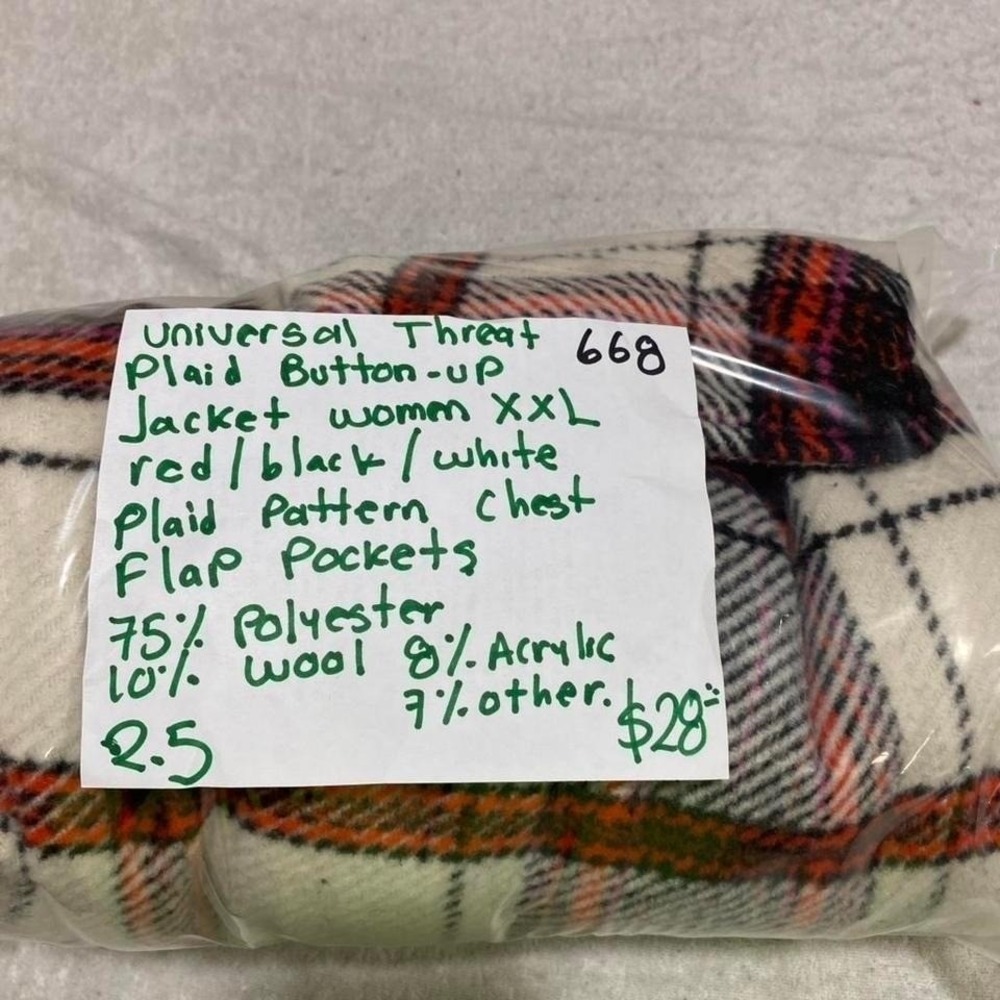 Universal Threat
668
Plaid Button-up
Jacket women XXL
red/black/white
Plaid Pattern, Chest
Flap Pockets
75% Polyester
10% Wool 8% Acrylic
7% other.
2.5
$28=